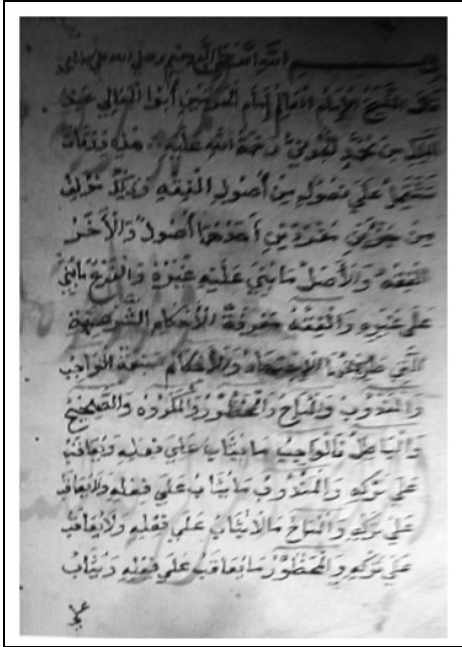 بسم الله الرحمن الرحيم وصلى الله على
قال الشيخ الإمام العالم إمام الحرمين أبوا المعالي عبد
الملك بن محمد الجويني رحمة الله عليه هذه ورقات
تشتمل على فصول من أصول الفقه وذلك مؤلف
من جزئين مفردين أحدهما أصول والآخر
الفقه والأصل ما بني عليه غيره والفرع ما بني
على غيره والفقه معرفة الأحكام الشرعية
اللتي طريقها الاجتهاد والأحكام سبعة الواجب
والمندوب والمباح والمحظور والمكروه والصحيح
والباطل فالواجب ما يثاب على فعله ويعاقب
على تركه والمندوب ما يثاب على فعله ولا يعاقب
على تركه والمباح ما لا يثاب على فعله ولا يعاقب
على تركه والمحظور ما يعاقب على فعله ويثاب